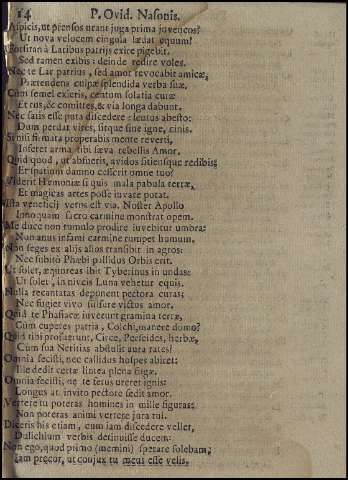 14 P. Ovid. Nasonis.
Aspicis, ut prensos urant juga prima juvencos?
Ut nova velocem cingula lædat equum?
Forsitan à Laribus patrijs exire pigebit.
Sed tamen exibis: deinde redire voles.
Nec te Lar patrius, sed amor revocabit amicæ,
Prætendens culpæ splendida verba suæ.
Cum semel exieris, centum solatia curæ
Et rus, & comites, & via longa dabunt.
Nec satis esse puta discedere: lentus abesto:
Dum perdat vires, sitque sine igne, cinis.
Si nisi firmata properabis mente reverti,
Inferet arma tibi sæva rebellis Amor.
Quid quod, ut abfueris, avidus sitiensque redibis;
Et spatium damno cesserit omne tuo?
Viderit Hæmoniæ si quis mala pabula terræ,
Et magicas artes posse juvare putat.
Ista veneficij verus est via. Noster Apollo
Innoquam sacro carmine monstrat opem.
Me duce non tumulo prodire jubebitur umbra:
Non anus infami carmine rumpet humum.
Non seges ex alijs alios transibit in agros:
Nec subitò Phœbi pallidus Orbis erit.
Ut solet, æquoreas ibit Tyberinus in undas:
Ut solet, in niveis Luna vehetur equis.
Nulla recantatas deponent pectora curas;
Nec fugiet vivo sulfure victus amor.
Quid te Phasiacæ juverunt gramina terræ,
Cum cuperes patria, Colchi, manere domo?
Quid tibi profuerunt, Circe, Perseides, herbæ,
Cum sua Neritias abstulit aura rates?
Omnia fecisti, nec callidus hospes abiret:
Ille dedit certæ lintea plena fugæ.
Omnia fecisti, ne te ferus ureret ignis:
Longus at invito pectore sedit amor.
Vertere tu poteras homines in mille figuras:
Non poteras animi vertere jura tui.
Diceris his etiam, cum jam discedere vellet,
Dulichium verbis detinuisse ducem:
Non ego, quod primò (memini) sperare solebam,
Jam precor, ut conjux tu meus esse velis,